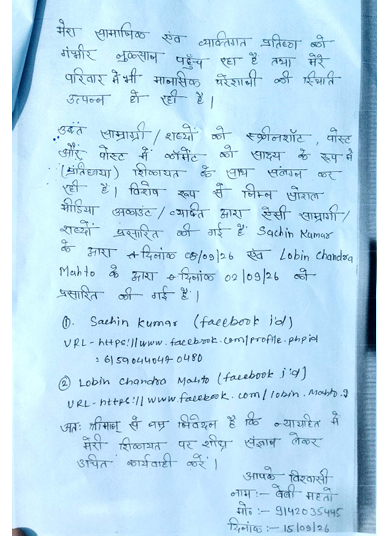 मेरा सामाजिक एंव व्यक्तिगत प्रतिष्ठा को
गंभीर नुकसान पहुँच रहा है तथा मेरे
परिवार में भी मानसिक परेशानी की स्थिति
उत्पन्न हो रही है।
उक्त सामाग्री / शब्दों को स्क्रीनशॉट, पोस्ट
और पोस्ट में कॉमेंट को साक्ष्य के रूप में
(प्रतिछाया) शिकायत के साथ संलग्न कर
रही है। विशेष रूप से निम्न सोशल
मीडिया अकाउंट / व्यक्ति द्वारा ऐसी सामाग्री /
शब्दों प्रसारित की गई है Sachin Kumar
के द्वारा दिनांक 05/09/26 एंव Lobin Chandra
Mahto के द्वारा दिनांक 02/09/26 को
प्रसारित की गई है।
①. Sachin Kumar (facebook i'd)
URL - https://www.facebook.com/profile.php?id
= 61590440470480
② Lobin Chandra Mahto (facebook i'd)
URL - https://www.facebook.com/lobin.mahto.
अतः श्रीमान् से नम्र निवेदन है कि न्यायहित में
मेरी शिकायत पर शीघ्र संज्ञान लेकर
उचित कार्यवाही करें।
आपके विश्वासी
नाम :- बेबी महतो
मो० :- 9142035445
दिनांक :- 15/09/26